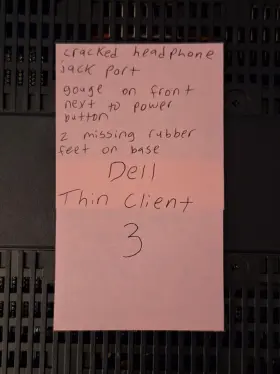 cracked headphone
jack port
gouge on front
next to power
button
2 missing rubber
feet on base
Dell
Thin Client
3